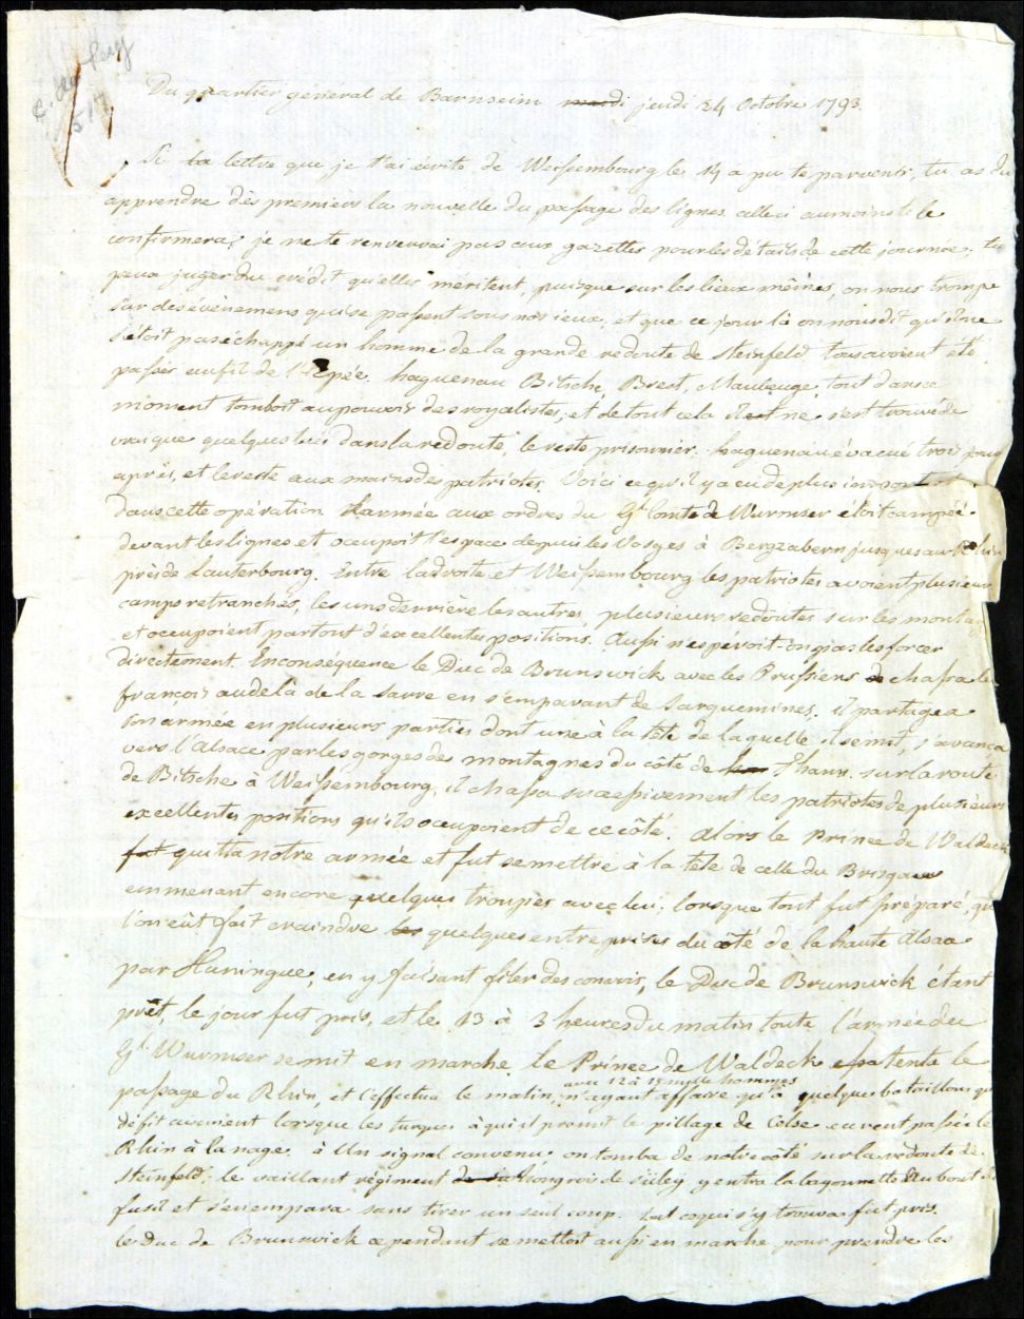 Du quartier général de Barnheim mardi jeudi 24 Octobre 1793
Si la lettre que je t'ai écrite de Weissembourg le 14 a pu te parvenir, tu as du
apprendre des premiers la nouvelle du passage des lignes. celle ci aumoins te le
confirmera; je ne te renverrai pas aux gazettes pour les détails de cette journée; tu
peux juger du crédit qu'elles méritent, puisque sur les lieux mêmes, on nous trompe
sur des évènemens qui se passent sous nos ieux, et que ce jour là on nous dit qu'il ne
s'étoit pas échappé un homme de la grande redoute de Steinfeld tous avoient été
passés au fil de l'Epée. haguenau Bitsche, Brest, Maubeuge, tout dans ce
moment tomboit au pouvoir des royalistes, et de tout cela il est ne s'est trouvé de
vrai que quelques tués dans la redoute, le reste prisonnier. haguenau évacué trois jours
après, et le reste aux mains des patriotes. Voici ce qu'il y a eu de plus
dans cette opération L'armée aux ordres du Gl Comte de Wurmser étoit campée
devant les lignes et occupoit l'espace depuis les Vosges à Bergzabern jusques au Rhin
près de Lauterbourg. Entre la droite et Weissembourg les patriotes avoient plusieurs
camps retranchés, les uns derrière les autres, plusieurs redoutes sur les
et occupoient partout d'excellentes positions. Aussi n'espéroit-on pas les forcer
directement. En conséquence le Duc de Brunswick avec les Prussiens de chassa les
françois au delà de la Sarre en s'emparant de Sarguemines. il partagea
son armée en plusieurs parties dont une à la tête de laquelle il se mit, s'avança
vers l'Alsace par les gorges des montagnes du côté de Thann. sur la route
de Bitsche à Weissembourg, il chassa successivement les patriotes de plusieurs
excellentes positions qu'ils occupoient de ce côté. Alors le Prince de Waldeck
fut quitta notre armée et fut se mettre à la tête de celle du Brisgaw
emmenant encore quelques troupes avec lui; lorsque tout fut préparé, que
l'on eût fait craindre les quelques entreprises du côté de la haute Alsace
par Huningue, en y faisant filer des convois, le Duc de Brunswick étant
prêt, le jour fut pris, et le 13 à 3 heures du matin toute l'armée du
Gl Wurmser se mit en marche. le Prince de Waldeck tenta le
avec 12 à 15 mille hommes
passage du Rhin, et l'effectua le matin, n'ayant affaire qu'à quelques bataillons qu'il
défit aisément lorsque les turques à qui il promit le pillage de Celse eurent passé le
Rhin à la nage. à Un signal convenu on tomba de notre côté sur la redoute de
Steinfeld; le vaillant régiment hongrois de y entra la bayonnette Au bout du
fusil et s'en empara sans tirer un seul coup. tout ce qui s'y trouva fut pris.
le Duc de Brunswick cependant se mettoit aussi en marche pour prendre les